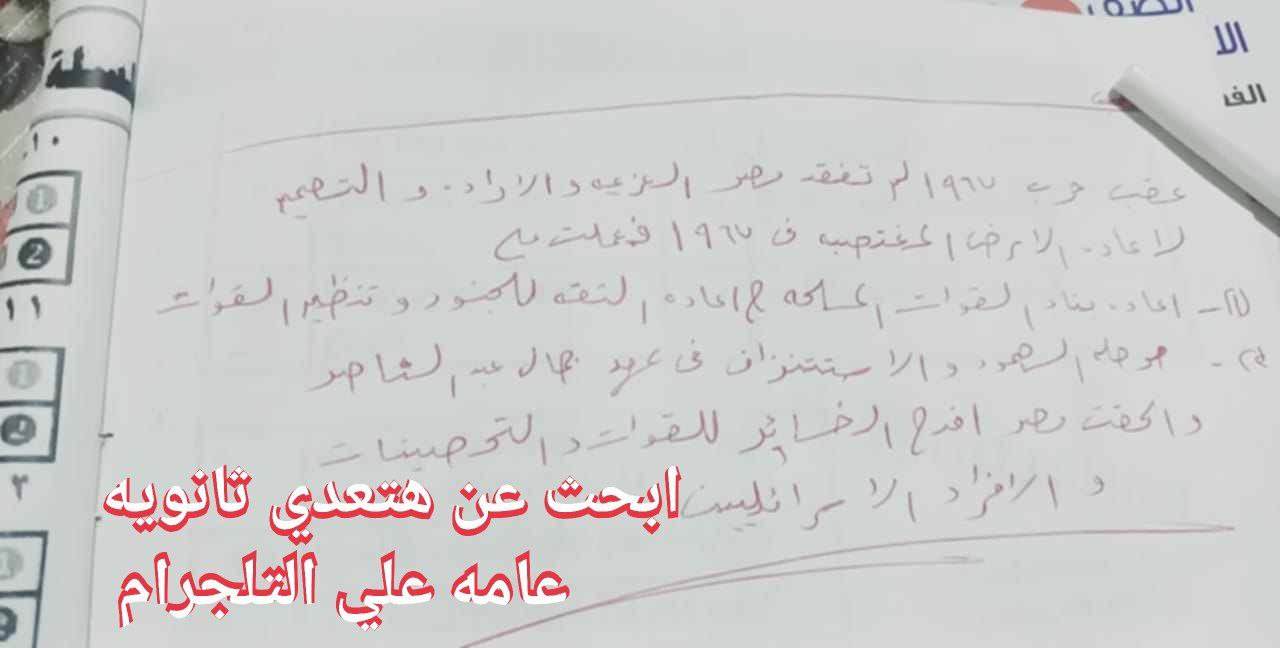 الصف
الا
الف
سلة
١٠.
عقب حرب ١٩٦٧ لم تفقد مصر العزيمه والاراده و التصميم
لاعاده الارض المغتصبه فى ١٩٦٧ فعملت على
(١)- اعاده بناء القوات المسلحه ج اعاده الثقه للجنود و تنظيم القوات
١١
(٢)- مرحله الصمود و الاستنزاف فى عهد جمال عبد الناصر
والحقت مصر افدح الخسائر للقوات و التحصينات
و الافراد الاسرائيليين
٣
ابحث عن هتعدي ثانويه
عامه علي التلجرام